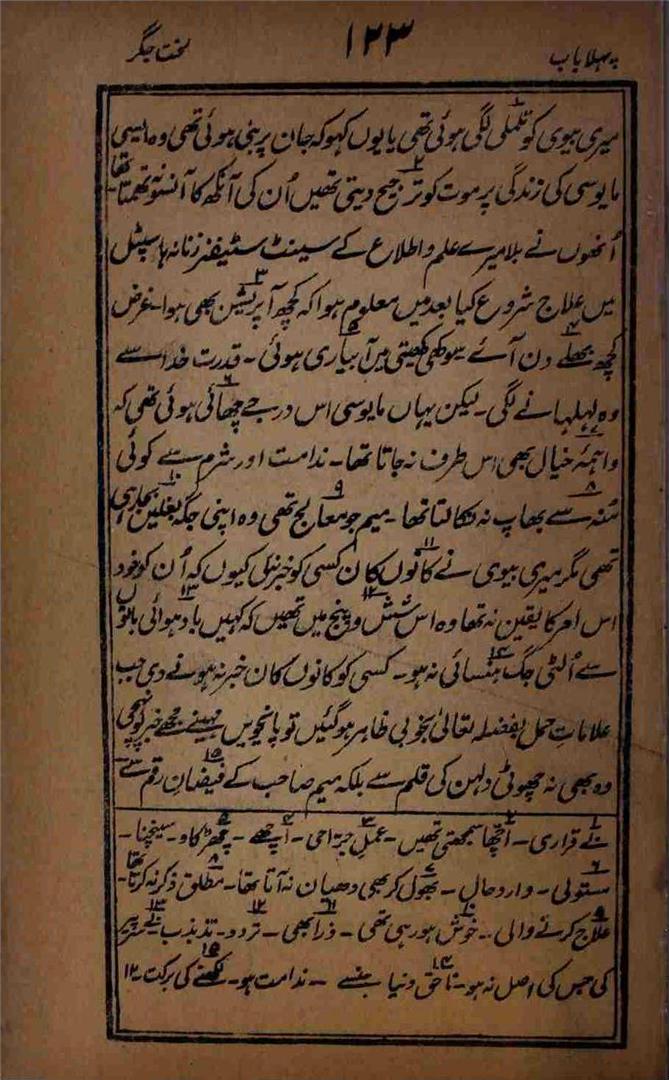 پہلا باب ۱۲۳ لخت جگر
میری بیوی کو تلملی لگی ہوئی تھی یا یوں کہو کہ جان پر بنی ہوئی تھی وہ ایسی
مایوسی کی زندگی پر موت کو ترجیح دیتی تھیں اُن کی آنکھ کا آنسو نہ تھمتا تھا۔
اُنھوں نے بلا میرے علم و اطلاع کے سینٹ سٹیفنز زنانہ ہاسپٹل
میں علاج شروع کیا بعد میں معلوم ہوا کہ کچھ آپریشن بھی ہوا۔ غرض
کچھ بھلے دن آئے سوکھی کھیتی میں آبیاری ہوئی۔ قدرت خدا سے
وہ لہلہانے لگی۔ لیکن یہاں مایوسی اس درجے چھائی ہوئی تھی کہ
واہمۂ خیال بھی اس طرف نہ جاتا تھا۔ ندامت اور شرم سے کوئی
مُنہ سے بھاپ نہ نکالتا تھا۔ میم جو معالج تھی وہ اپنی جگہ بغلیں بجا رہی
تھی مگر میری بیوی نے کانوں کان کسی کو خبر نہ کی کیوں کہ اُن کو خود
اس امر کا یقین نہ تھا وہ اس شش و پنج میں تھیں کہ کہیں باد ہوائی باتوں
سے اُلٹی جگ ہنسائی نہ ہو۔ کسی کو کانوں کان خبر نہ ہونے دی جب
علامات حمل بفضلہ تعالیٰ بخوبی ظاہر ہو گئیں تو پانچویں مہینے مجھے خبر پہونچی
وہ بھی نہ چھوٹی دلہن کی قلم سے بلکہ میم صاحب کے فیضان رقم سے
۱ بے قراری۔ ۲ اچھا سمجھتی تھیں۔ ۳ عمل جراحی۔ ۴ اچھے۔ ۵ چھڑکاو۔ سینچنا۔
۶ مستولی۔ وارد حال۔ ۷ بھول کر بھی دھیان نہ آتا تھا۔ ۸ مطلق ذکر نہ کرتا تھا۔
۹ علاج کرنے والی۔ ۱۰ خوش ہو رہی تھی۔ ۱۱ ذرا بھی۔ ۱۲ تردد۔ تذبذب۔ ۱۳ بے سر پیر
کی جس کی اصل نہ ہو۔ ۱۴ ناحق دنیا ہنسے۔ ندامت ہو۔ ۱۵ لکھنے کی برکت۔ ۱۲